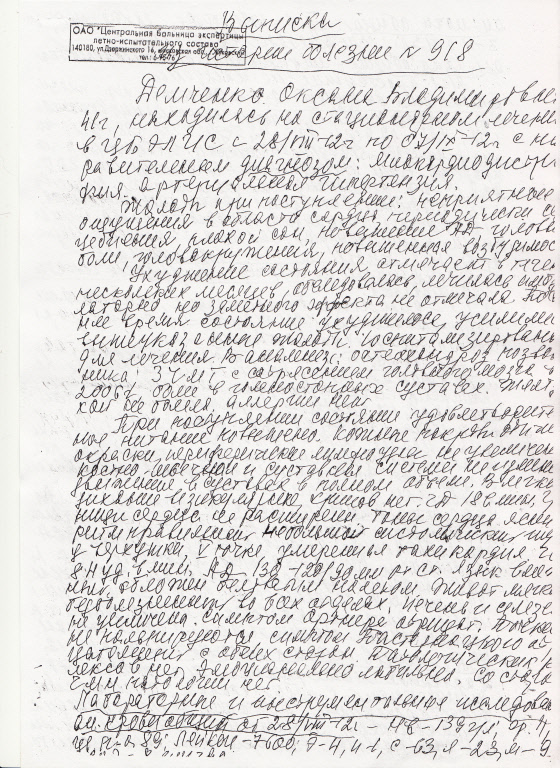 Выписка
ОАО "Центральная больница экспертизы
летно-испытательного состава"
140180, ул. Дзержинского 16, Московская обл.
из истории болезни № 918
Демченко Оксана Владимировна
41г, находилась на стационарном лечении
в ЦБЭЛИС с 28/VIII-12г по 07/IX-12г с на
равительным диагнозом: миокардиодистро
фия. артериальная гипертензия.
Жалобы при поступлении: неприятные
ощущения в области сердца, периодически се
цебиения, плохой сон, повышение АД, головн
боли, головокружения, повышенная возбудимос
Ухудшение состояния отмечает в течен
нескольких месяцев, обследовалась, лечилась амбу
латорно но заметного эффекта не отмечала. Пос
нее время состояние ухудшилось, усилились
вышеуказанные жалобы. Госпитализирована
для лечения. В анамнезе: остеохондроз позво
ника. ЗЧМТ с сотрясением головного мозга в
2006г. боли в голеностопных суставах.
кой не болела, аллергии нет.
При поступлении состояние удовлетворит
ное питание повышено. Кожные покровы
окраски, периферические лимфоузлы не увеличен
костно-мышечная и суставная системы не измен
движения в суставах в полном объеме. В легких
дыхание везикулярное хрипов нет. ЧД 18 в мин. Г
ницы сердца не расширены. Тоны сердца ясные
ритм правильный, небольшой систолический шу
у верхушки, V точке, умеренная тахикардия
уд в мин, АД-130-120/90 мм рт ст. Язык влаж
ный, обложен беловатым налетом. Живот мягк
безболезненный во всех отделах. Печень и селезе
не увеличена. симптом Ортнера отрицат. Почки
не пальпируются, симптом Пастернацкого от
цателен с обеих сторон. Патологических
лексов нет. Эмоционально лабильна. Со сторо
ЧМН патологии нет.
Лабораторные и инструментальные исследован
ан. крови общий от 28/VIII-12г-Нв-139г/л, эр.4,
цв. п-л 89; Лейкоц-7600; Э-4, п-1, с-63, л-23, м-9.